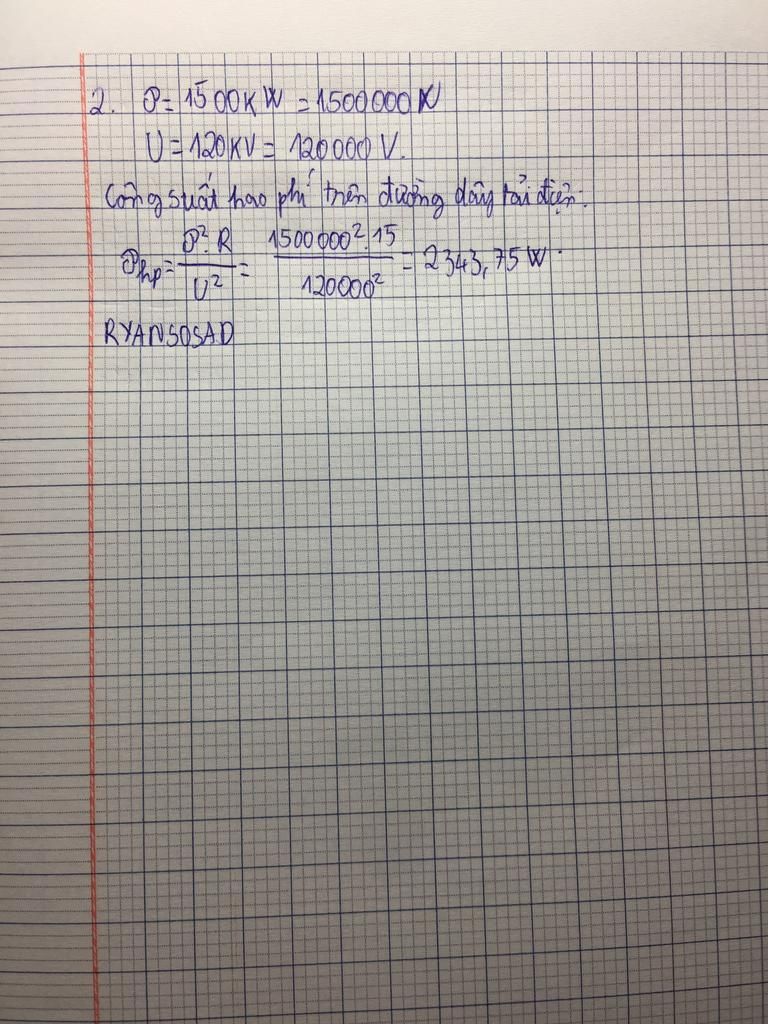 2. P = 1500KW = 1500000W
U = 120KV = 120000 V.
Công suất hao phí trên đường dây tải điện:
Php = P².R / U² = 1500000².15 / 120000² = 2343,75 W.
RYANSOSAD